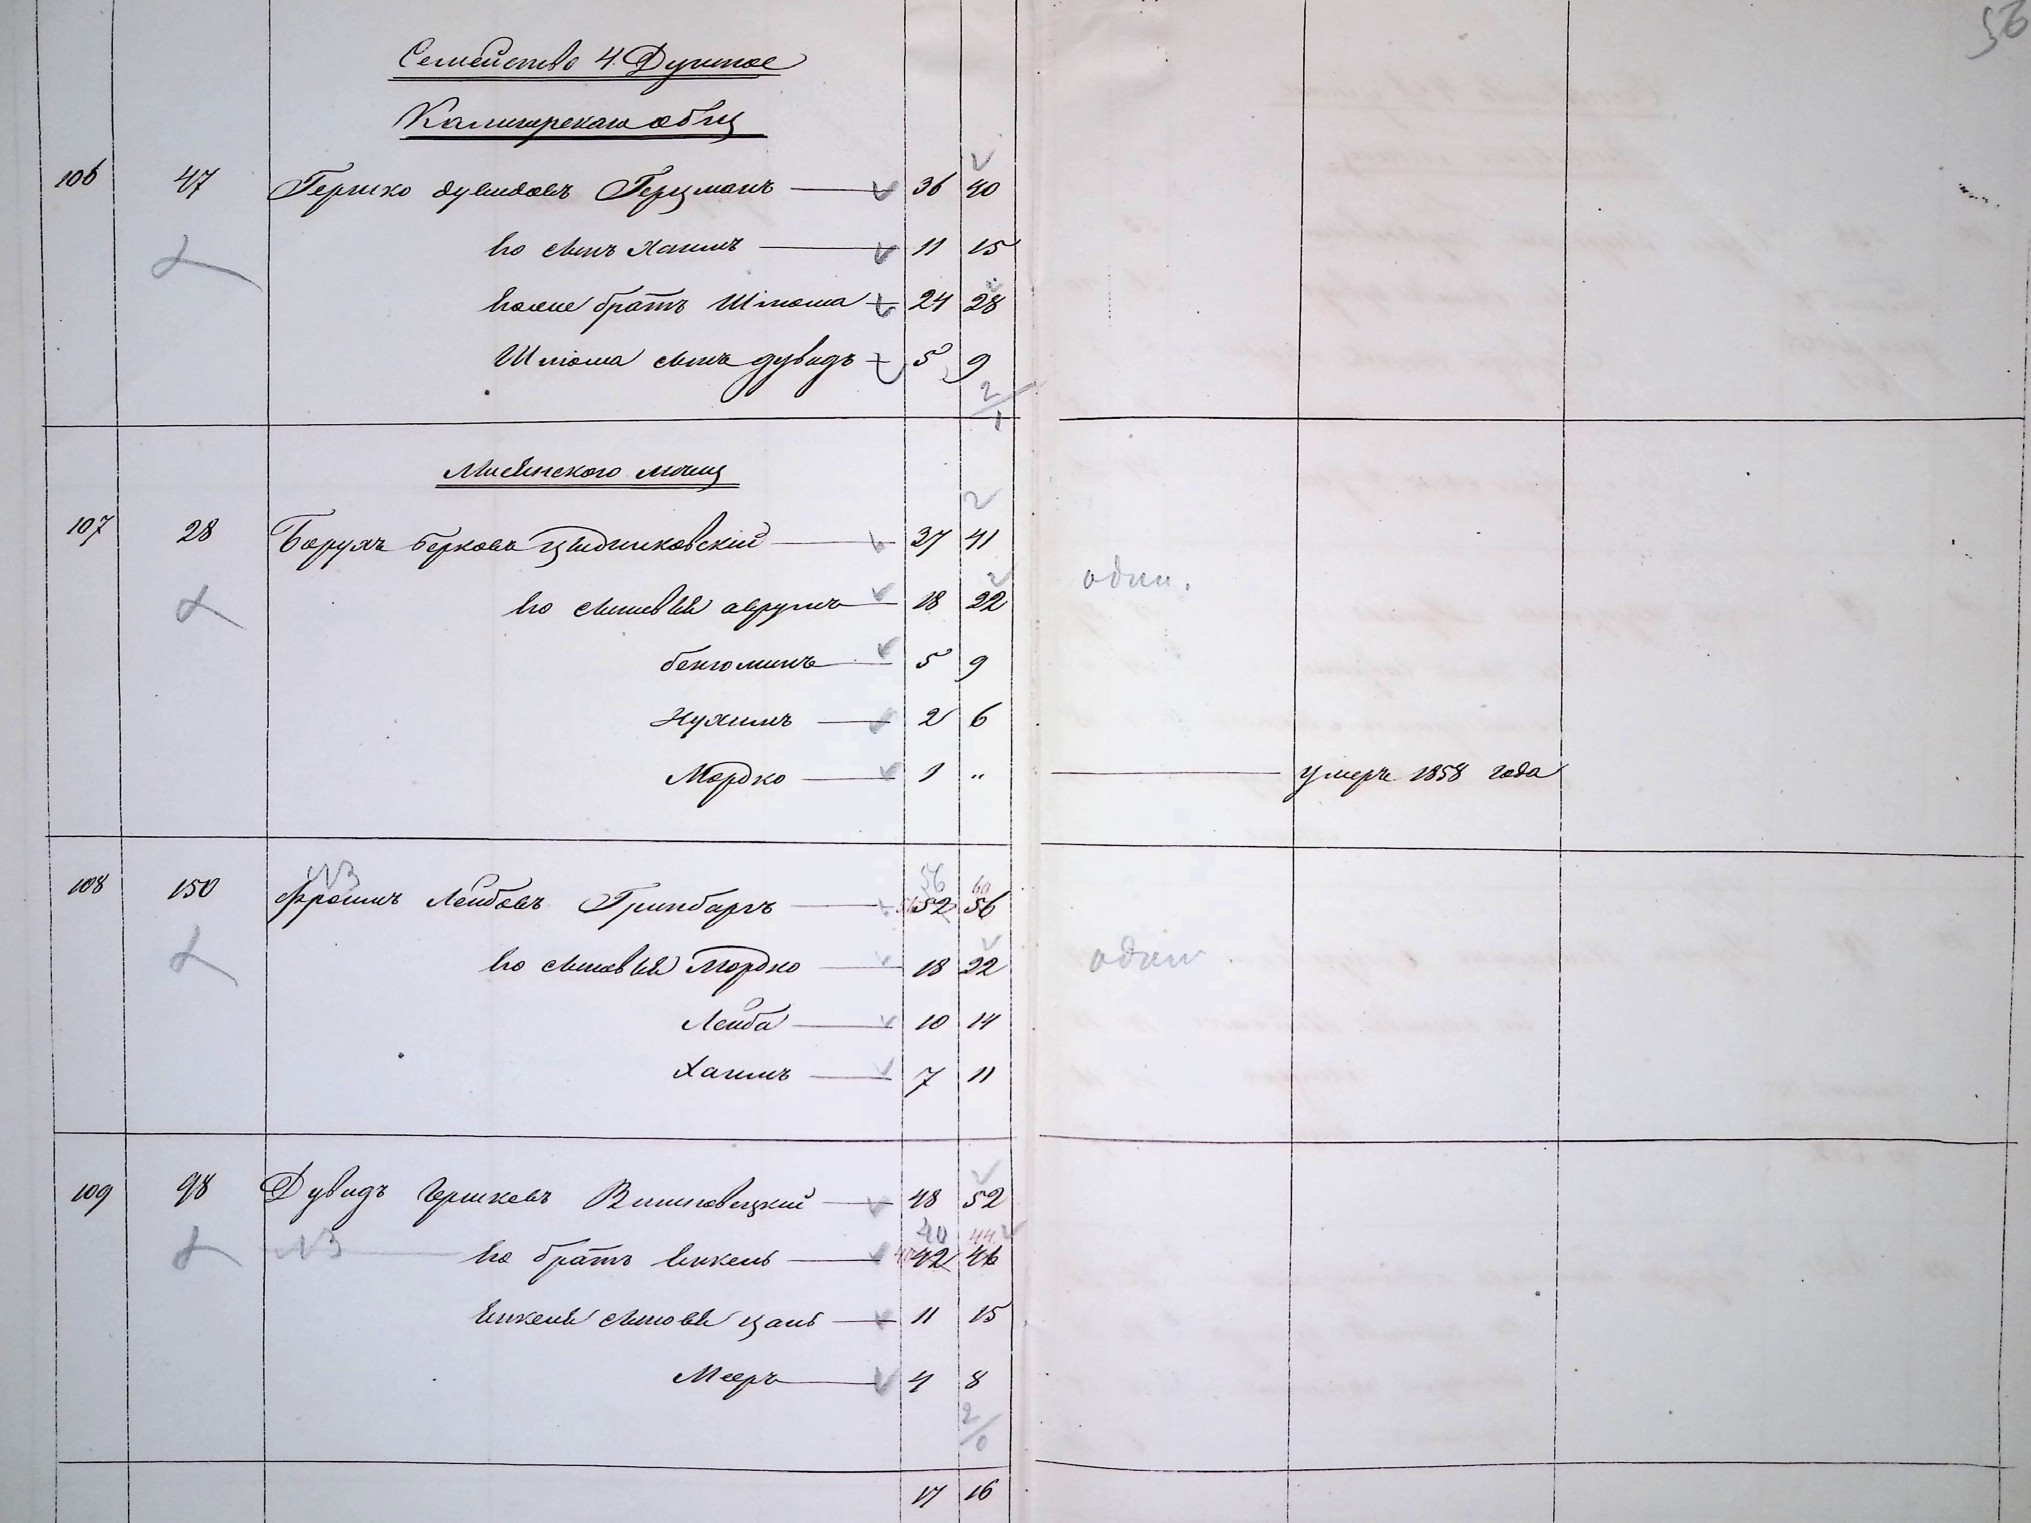 56
Семейство 4. Душное
Калигорскаго общ
106 47 Гершко дувидовъ Герцманъ 36 40
Его сынъ Хаимъ 11 15
Гошие братъ Шлиома 24 28
Шлиома сынъ дувидъ 5 9
2/1
Мисѣнского мѣщ
107 28 Борухъ Берковъ 37 41
один.
Его сыновья аврумъ 18 22
бениоминъ 5 9
Нухимъ 2 6
Мордко 1 " умеръ 1858 года
108 150 NB Фроимъ Лейбовъ Гринбаргъ 56 52 60 56
Его сыновья Мордко 18 22 один
Лейба 10 14
Хаимъ 7 11
109 98 Дувидъ Гершковъ Вишновецкий 48 52
NB Его братъ Янкель 40 42 44 46
Янкеля сыновья 11 15
Мееръ 4 8
2/0
17 16